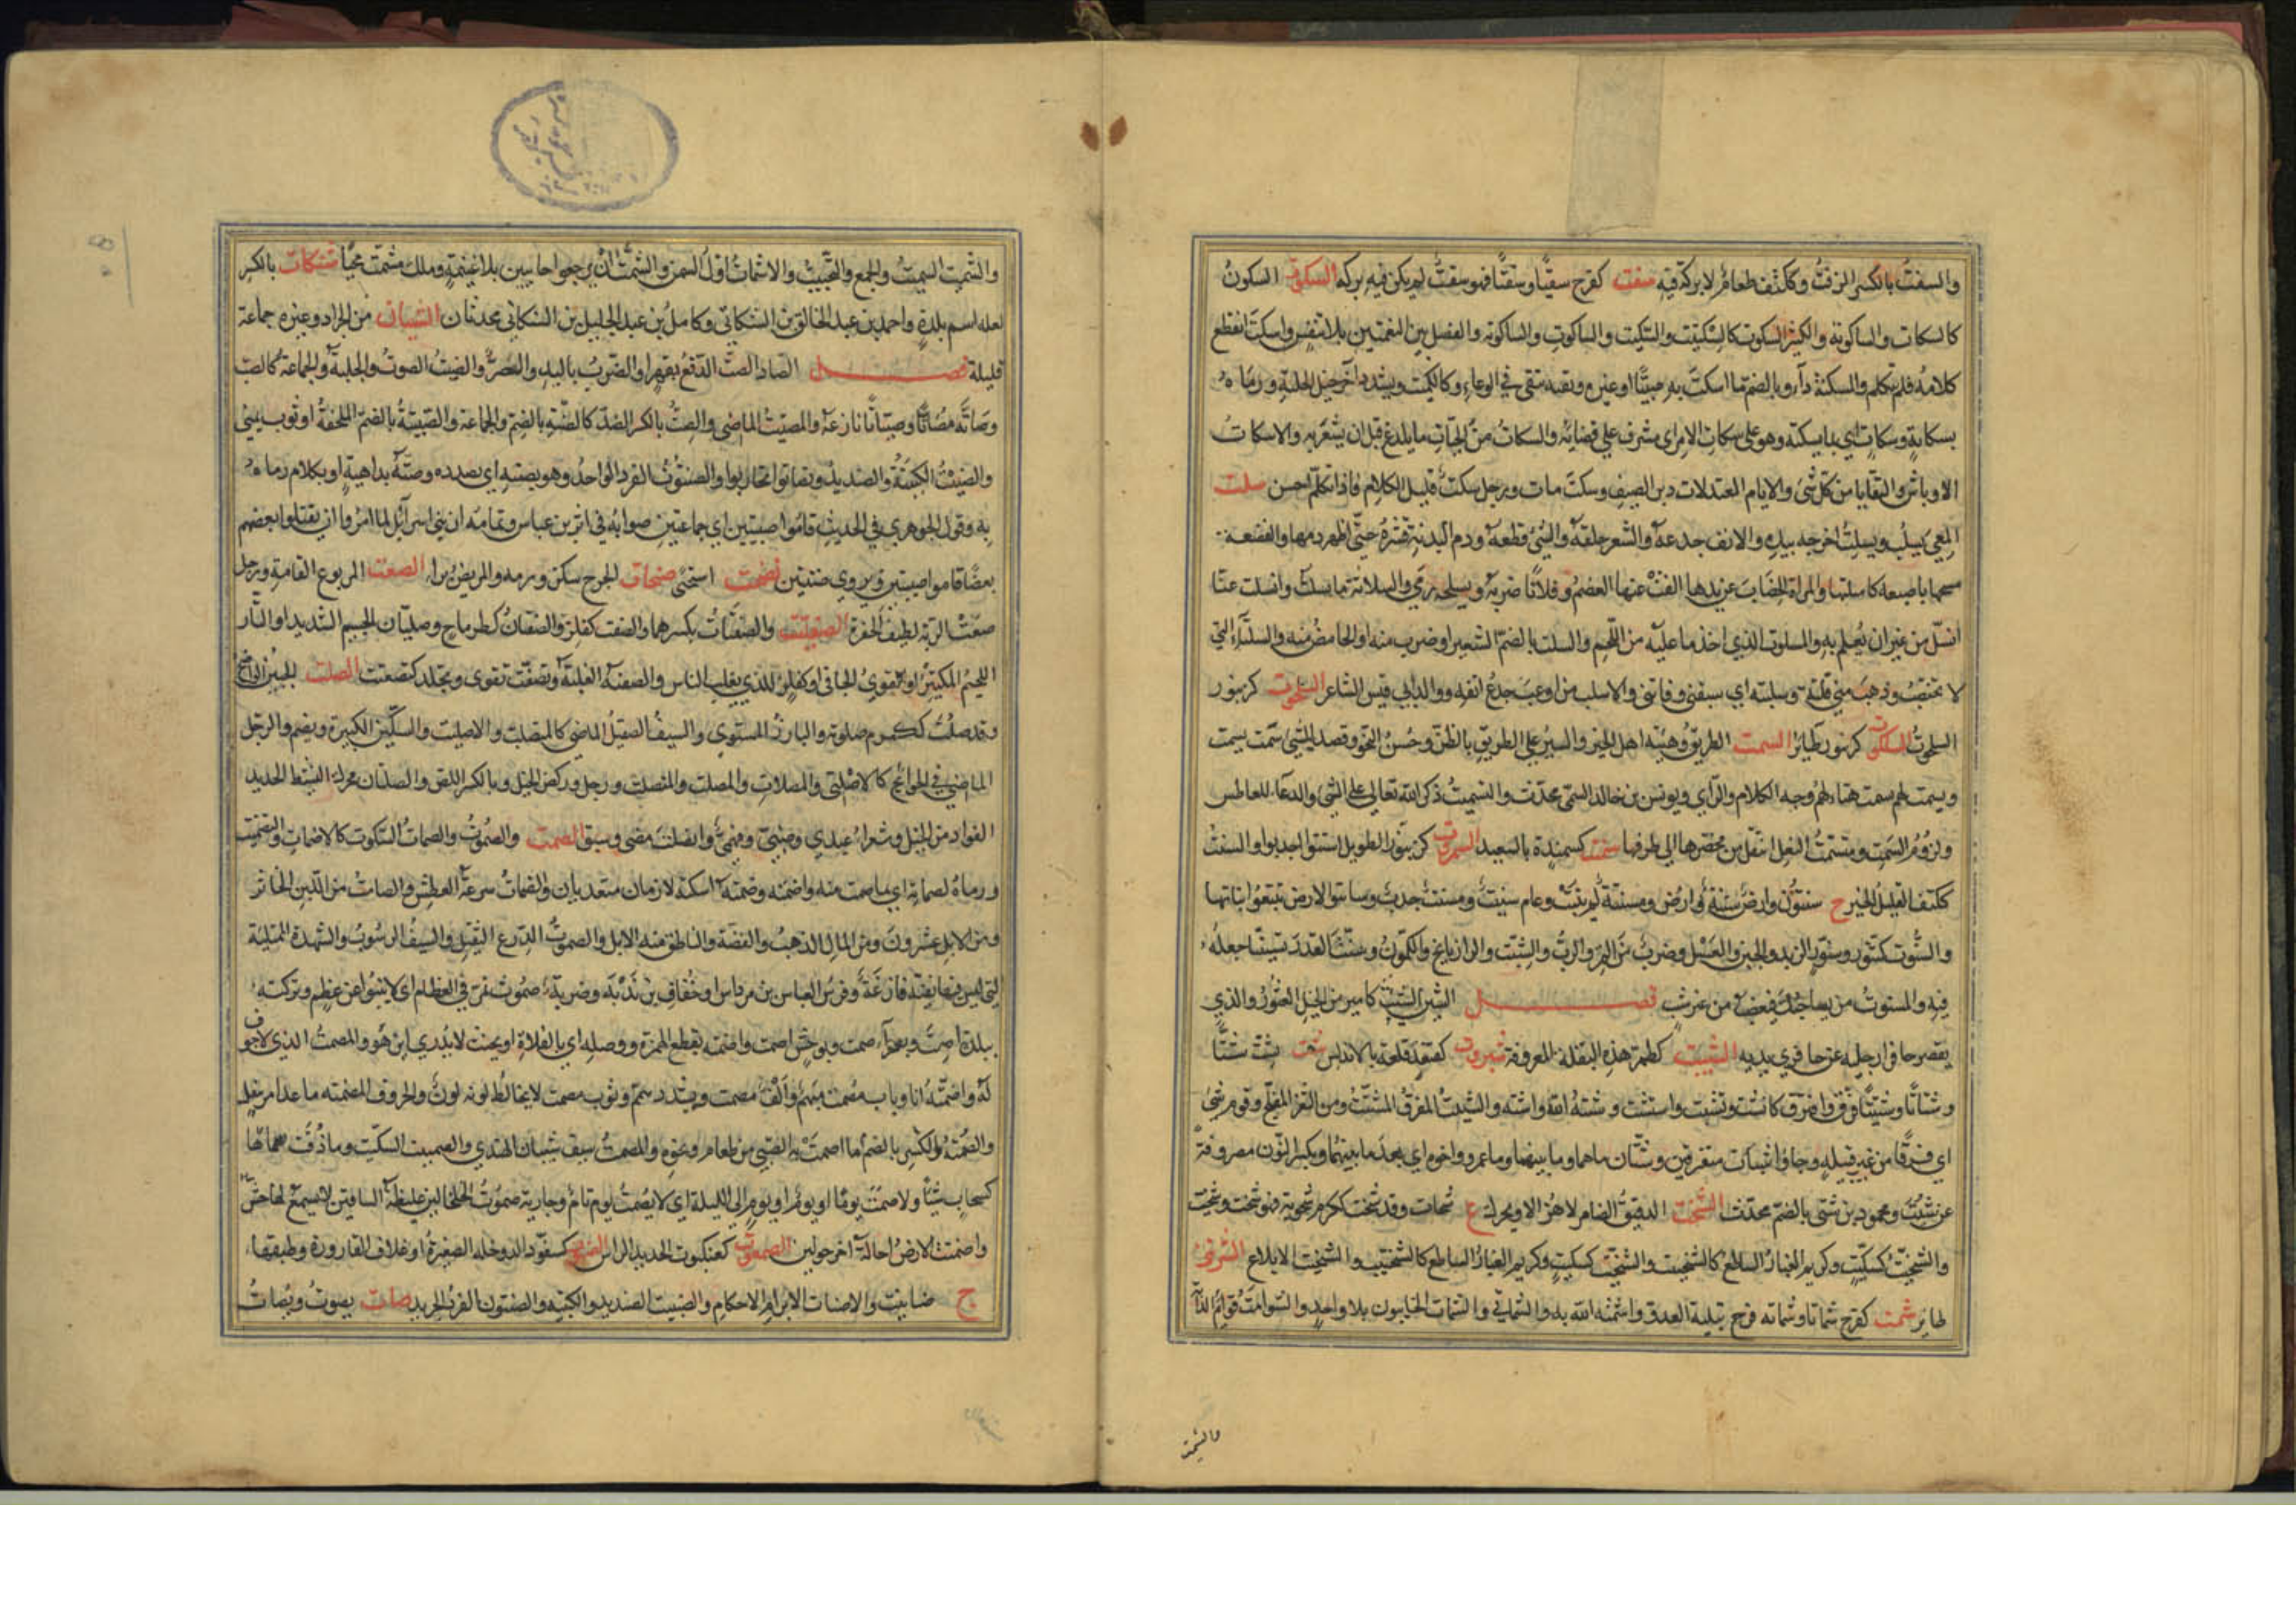 والسفت بالكسر الزفت وككتف طعام لا بركة فيه سفت كفرح سفتا وسفتا فهو سفت لم يكن فيه بركة السكوت السكون
كالسكات والساكوتة والكثير السكوت كالسكتيت والسكيت والساكوت والساكوتة والفصل بين النغمتين بلا تنفس واسكت انقطع
كلامه فلم يتكلم والسكتة داء وبالضم ما اسكت به صبيا او غيره وبقية تبقى في الوعاء وكالكميت ويشدد اخر خيل الحلبة ورماه
بسكاتة وسكات اي بما يسكته وهو على سكات الامر اي مشرف على قضائه والسكات من الحيات ما يلدغ قبل ان يشعر به والاسكات
الاوباش والبقايا من كل شئ والايام المعتدلات دبر الصيف وسكت مات ورجل سكت قليل الكلام فاذا تكلم احسن سلت
المعى يسلت ويسلت اخرجه بيده والانف جدعه والشعر حلقه والشئ قطعه ودم البدنة قشره حتى اظهر دمها والقصعة
مسحها باصبعه كاستلتها والمراة الخضاب عن يدها القت عنها العصم وفلانا ضربه وبسلحه رمى والسلاتة ما يسلت وانسلت عنا
انسل من غير ان يعلم به والمسلوت الذي اخذ ما عليه من اللحم والسلت بالضم الشعير او ضرب منه او الحامض منه والسلتاء التي
لا تختضب وذهب مني فلتة وسلتة اي سبقني وفاتني والاسلت من اوعب جدع انفه ووالد ابي قيس الشاعر السلحوت كزنبور
السلكوت كزنبور طائر السمت الطريق وهيئة اهل الخير والسير على الطريق بالظن وحسن النحو وقصد الشئ سمت يسمت
ويسمت لهم يسمت هيا لهم وجه الكلام والراي ويونس بن خالد السمتي محدث والتسميت ذكر الله تعالى على الشئ والدعاء للعاطس
ولزوم السمت ومتسمت النعل اسفل من مخصرها الى طرفها سمنت كسمندة بالصعيد السمروت كزنبور الطويل اسنتوا اجدبوا والسنت
ككتف القليل الخير ج سنتون وارض سنتة ومسنتة لم تنبت وعام سنيت ومسنت جدب وسانتوا الارض تتبعوا نباتها
والسنوت كتنور وسنور الزبد والجبن والعسل وضرب من التمر والرب والشبت والرازيانج والكمون وسنت القدر تسنيتا جعله
فيه والمسنوت من يصاحبك فيغضب من غير سبب فصل الشين الشئيت كامير من الخيل العثور والذي
يقصر حافرا رجليه عن حافري يديه الشبت كطمر هذه البقلة المعروفة شبروت كقعقد قلعة بالاندلس شت يشت شتا
وشتاتا وشتيتا فرق وافترق كانشت وتشتت واستشت وشتته الله واشته والشتيت المفرق المشتت ومن الثغر المفلج وقوم شتى
اي فرقا من غير قبيلة وجاؤا اشتات متفرقين وشتان ما هما وما بينهما وما عمرو واخوه اي بعد ما بينهما ويكسر النون مصروفة
عن شتت ومحمود بن شتى بالضم محدث الشخت الدقيق الضامر لا هزالا ويحرك ج شخات وقد شخت ككرم شخوتة فهو شخت وشخيت
والشخيت كسكيت وكريم الغبار الساطع كالشختيت والشخيت الابلاع الشرنتى
طائر شمت كفرح شماتا وشماتة فرح ببلية العدو واشمته الله به والشماتى والشمات الخائبون بلا واحد والشوامت قوائم الدابة
والشمت
والتشميت التسميت والجمع والتخييب والاشمات اول السمن والتشمت ان يرجعوا خائبين بلا غنيمة وملك مشمت محيا شنكات بالكسر
لعله اسم بلدة واحمد بن عبد الخالق بن الشنكاتي وكامل بن عبد الجليل بن الشنكاتي محدثان الشيتان من الجراد وغيره جماعة
قليلة فصل الصاد الصت الدفع بقهر او الضرب باليد والصر والصيت الصوت والجلبة والجماعة كالصت
وصاته مصاتا وصتاتا نازعه والمصتيت الماضي والصت بالكسر الضد كالصتة بالضم والجماعة والصتية بالضم الملحفة او ثوب يمني
والصتيت الكتيبة والصنديد وتصاتوا تحاربوا والصنتوت الفرد الواحد وهو بصتته اي بصدده وصته بداهية او بكلام رماه
به وقول الجوهري في الحديث قاموا صتيتين اي جماعتين صوابه في اثر بن عباس وتمامه ان بني اسرائيل لما امروا ان يقتلوا بعضهم
بعضا قاموا صتيتين ويروى صتتين اصحت استحى صحات الجرح سكن ورمه والمريض برا الصعت المربوع القامة ورجل
صعت الربة لطيف الجفرة الصفتيت والصفتات بكسرهما والصفت كفلز والصفتان كطرماح وصليان الجسيم الشديد او التار
اللحيم المكتنز او القوي الجافي او كفلز للذي يغلب الناس والصفتة الغلبة وتصفت تقوى وتجلد كتصعت الصلت الجبين الواضح
وقد صلت ككرم صلوتة والبارز المستوى والسيف الصقيل الماضي كالمنصلت والاصليت والسكين الكبيرة ويضم والرجل
الماضي في الحوائج كالاصلتى والمصلات والمصلت والمنصلت ورجل وركض الخيل وبالكسر اللص والصلتان محركة النشيط الحديد
الفواد من الخيل وشعراء عبدي وضبي وفهمي وانصلت مضى وسبق الصمت والصموت والصمات السكوت كالاصمات والتصميت
ورماه بصماته اي بما صمت منه واصمته وصمته اسكته لازمان متعديان والصمات سرعة العطش والصامت من اللبن الخاثر
ومن الابل عشرون ومن المال الذهب والفضة والناطق منه الابل والصموت الدرع الثقيل والسيف الرسوب والشهدة الممتلئة
التي ليس فيها ثقبة فارغة وفرس العباس بن مرداس او خفاف بن ندبة وضربة صموت تمر في العظام اي لا ينبو عن عظم وتركته
ببلدة اصمت وبصحراء اصمت وبوحش اصمت واصمته بقطع الهمزة ووصله اي بالفلاة او بحيث لا يدرى اين هو والمصمت الذي لا جوف
له واصمته انا وباب مصمت مبهم والف مصمت ويشدد متمم وثوب مصمت لا يخالط لونه لون والحروف المصمتة ما عدا مر بنفل
والصمتة بالضم والكسر ما اصمت به الصبي من طعام ونحوه والمصمت سيف شيبان النهدي والصميت السكيت وما ذقت صماتا
كسحاب شيئا ولا صمت يوما او يوم او يوم الى الليلة اي لا يصمت يوم تام وجارية صموت الخلخالين غليظة الساقين لا يسمع لها حس
واصمتت الارض احالت اخر حولين الصمعوت كعنكبوت الحديد الراس الصنوت كسفود الدوخلة الصغيرة او غلاف القارورة وطبقها
ج صنانيت والاصنات الاتراص والاحكام والصنتيت الصنديد والكتيبة والصنتوت الفرد الحريد صات يصوت ويصات